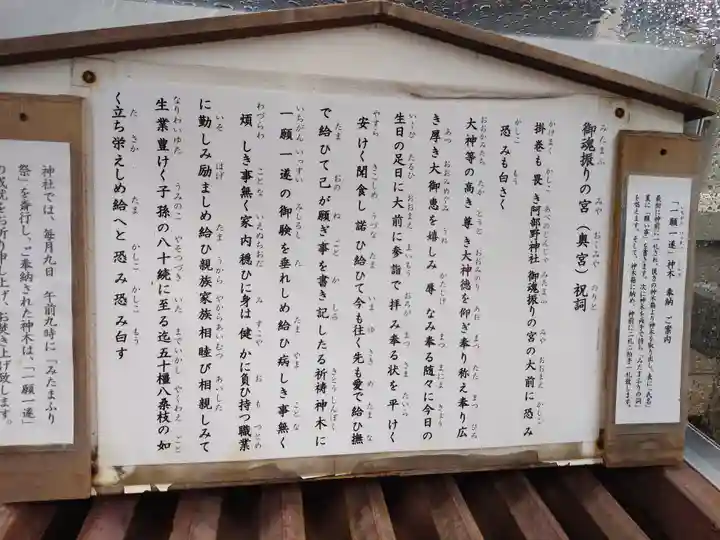 「一願一遂」神木 奉納 ご案内
御魂振りの宮（奥宮）祝詞
掛巻も畏き阿部野神社 御魂振りの宮の大前に恐み
恐みも白さく
大神等の高き尊き大神徳を仰ぎ奉り称え奉り広
き厚き大御恵を嬉しみ辱なみ奉る随々に今日の
生日の足日に大前に参詣で拝み奉る状を平けく
安けく聞食し諾ひ給ひて今も往く先も愛で給ひ撫
で給ひて己が願ぎ事を書き記したる祈祷神木に
一願一遂の御験を垂れしめ給ひ病しき事無く
煩しき事無く家内穏ひに身は健かに負ひ持つ職業
に勤しみ励ましめ給ひ親族家族相睦び相親しみて
生業豊けく子孫の八十続に至る迄五十橿八桑枝の如
く立ち栄えしめ給へと恐み恐み白す
神社では、毎月九日 午前九時に「みたまふり
祭」を斎行し、ご奉納された神木は、「一願一遂」
の成就をお祈り申し上げ、お焚き上げ致します。